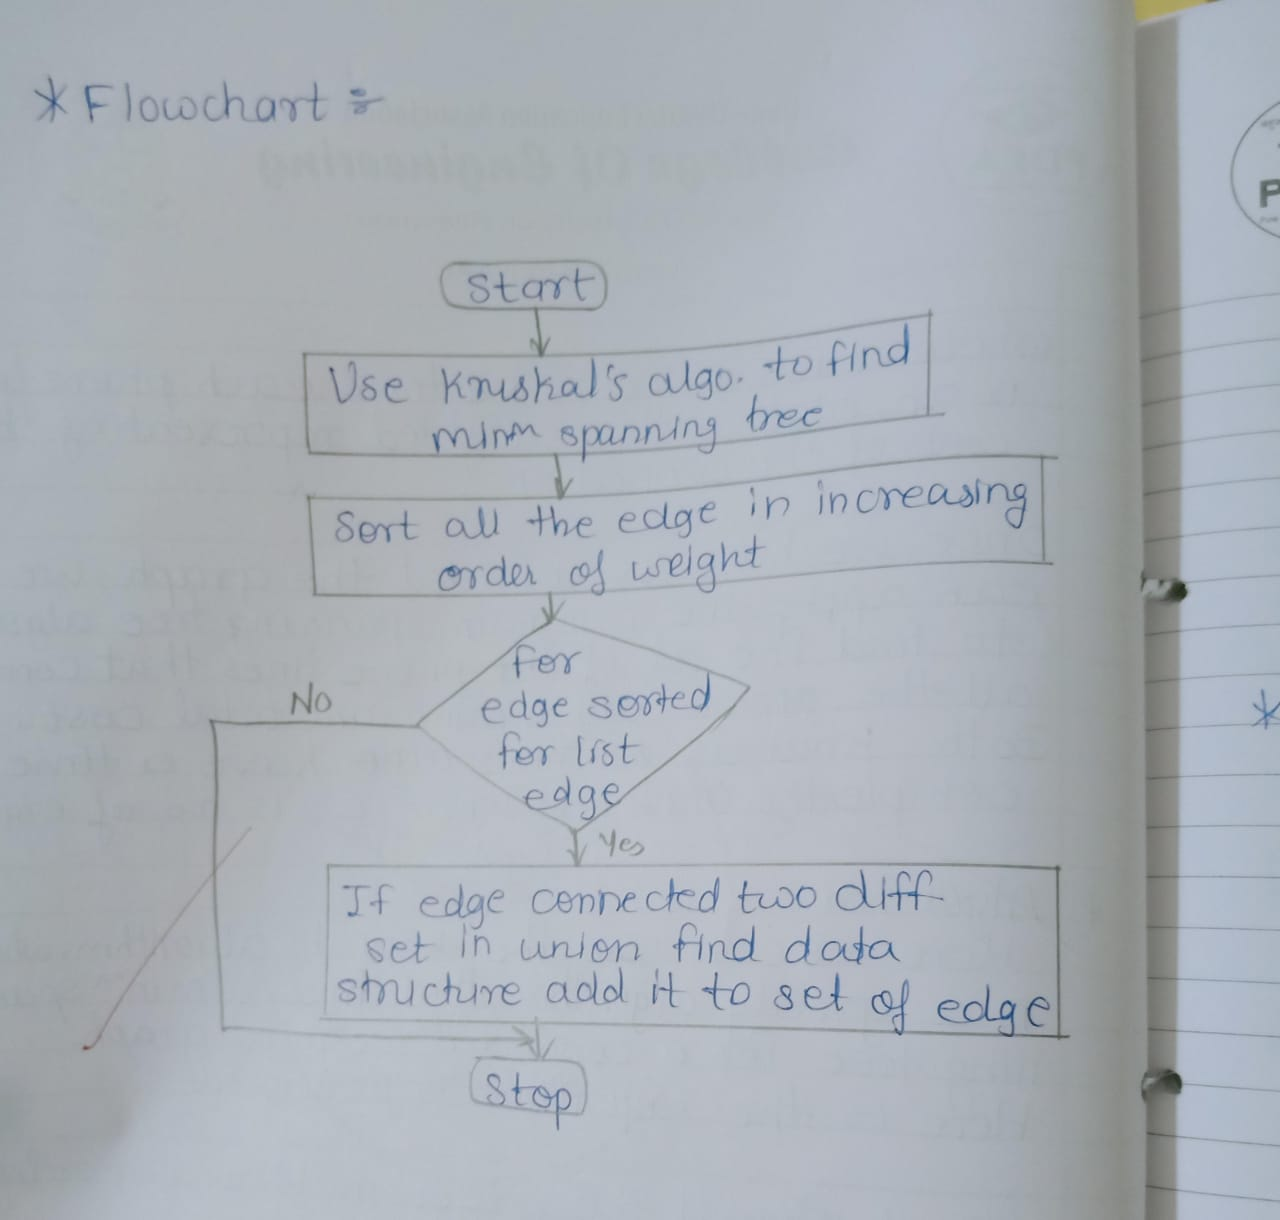 * Flowchart :-
Start
Use Kruskal's algo. to find
minm spanning tree
Sort all the edge in increasing
order of weight
for
edge sorted
for list
edge
No
Yes
If edge connected two diff
set in union find data
structure add it to set of edge
Stop
College Of Engineering
P
*